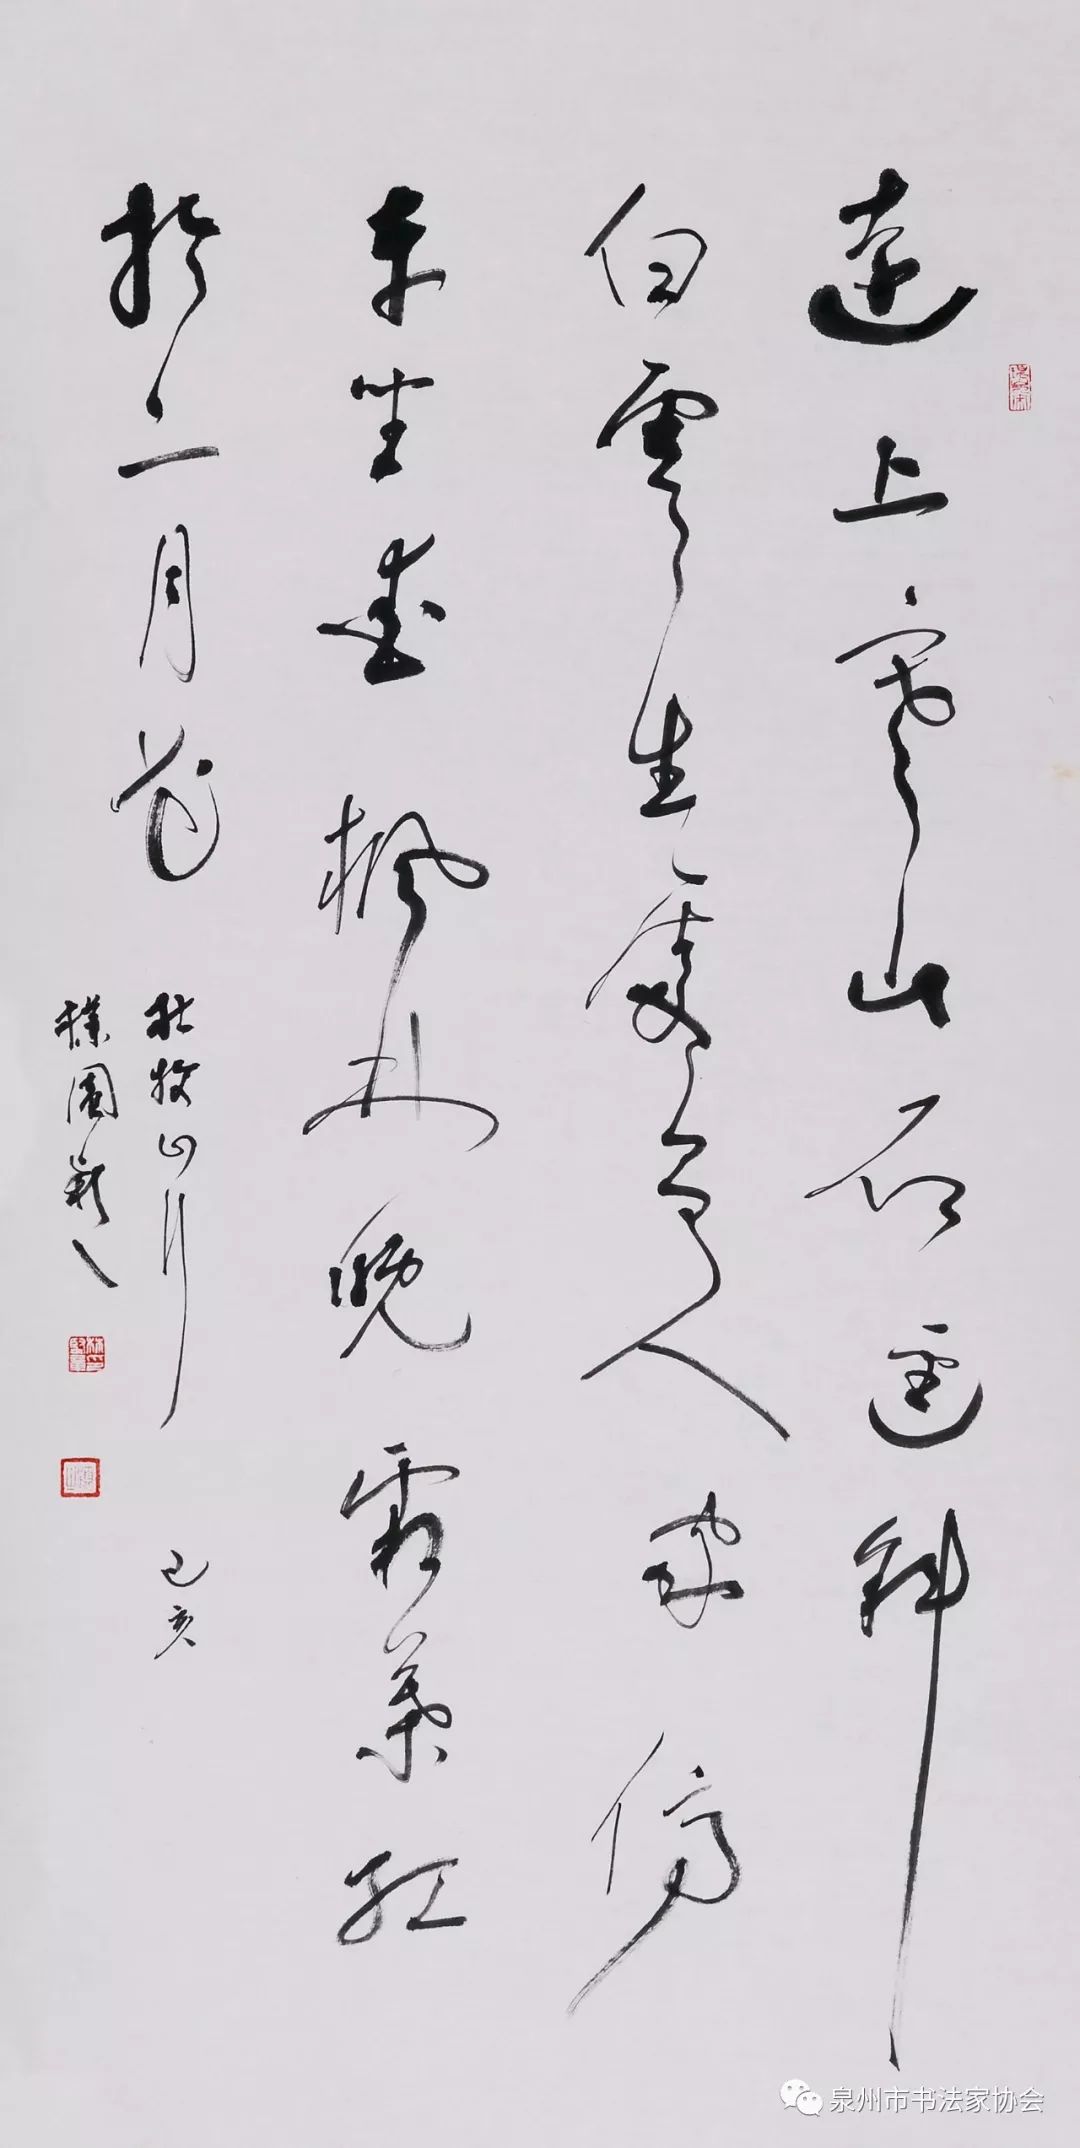 遠上寒山石逕斜
白雲生處有人家停
車坐愛楓林晚霜葉紅
於二月花
杜牧山行 己亥
樸園
泉州市书法家协会